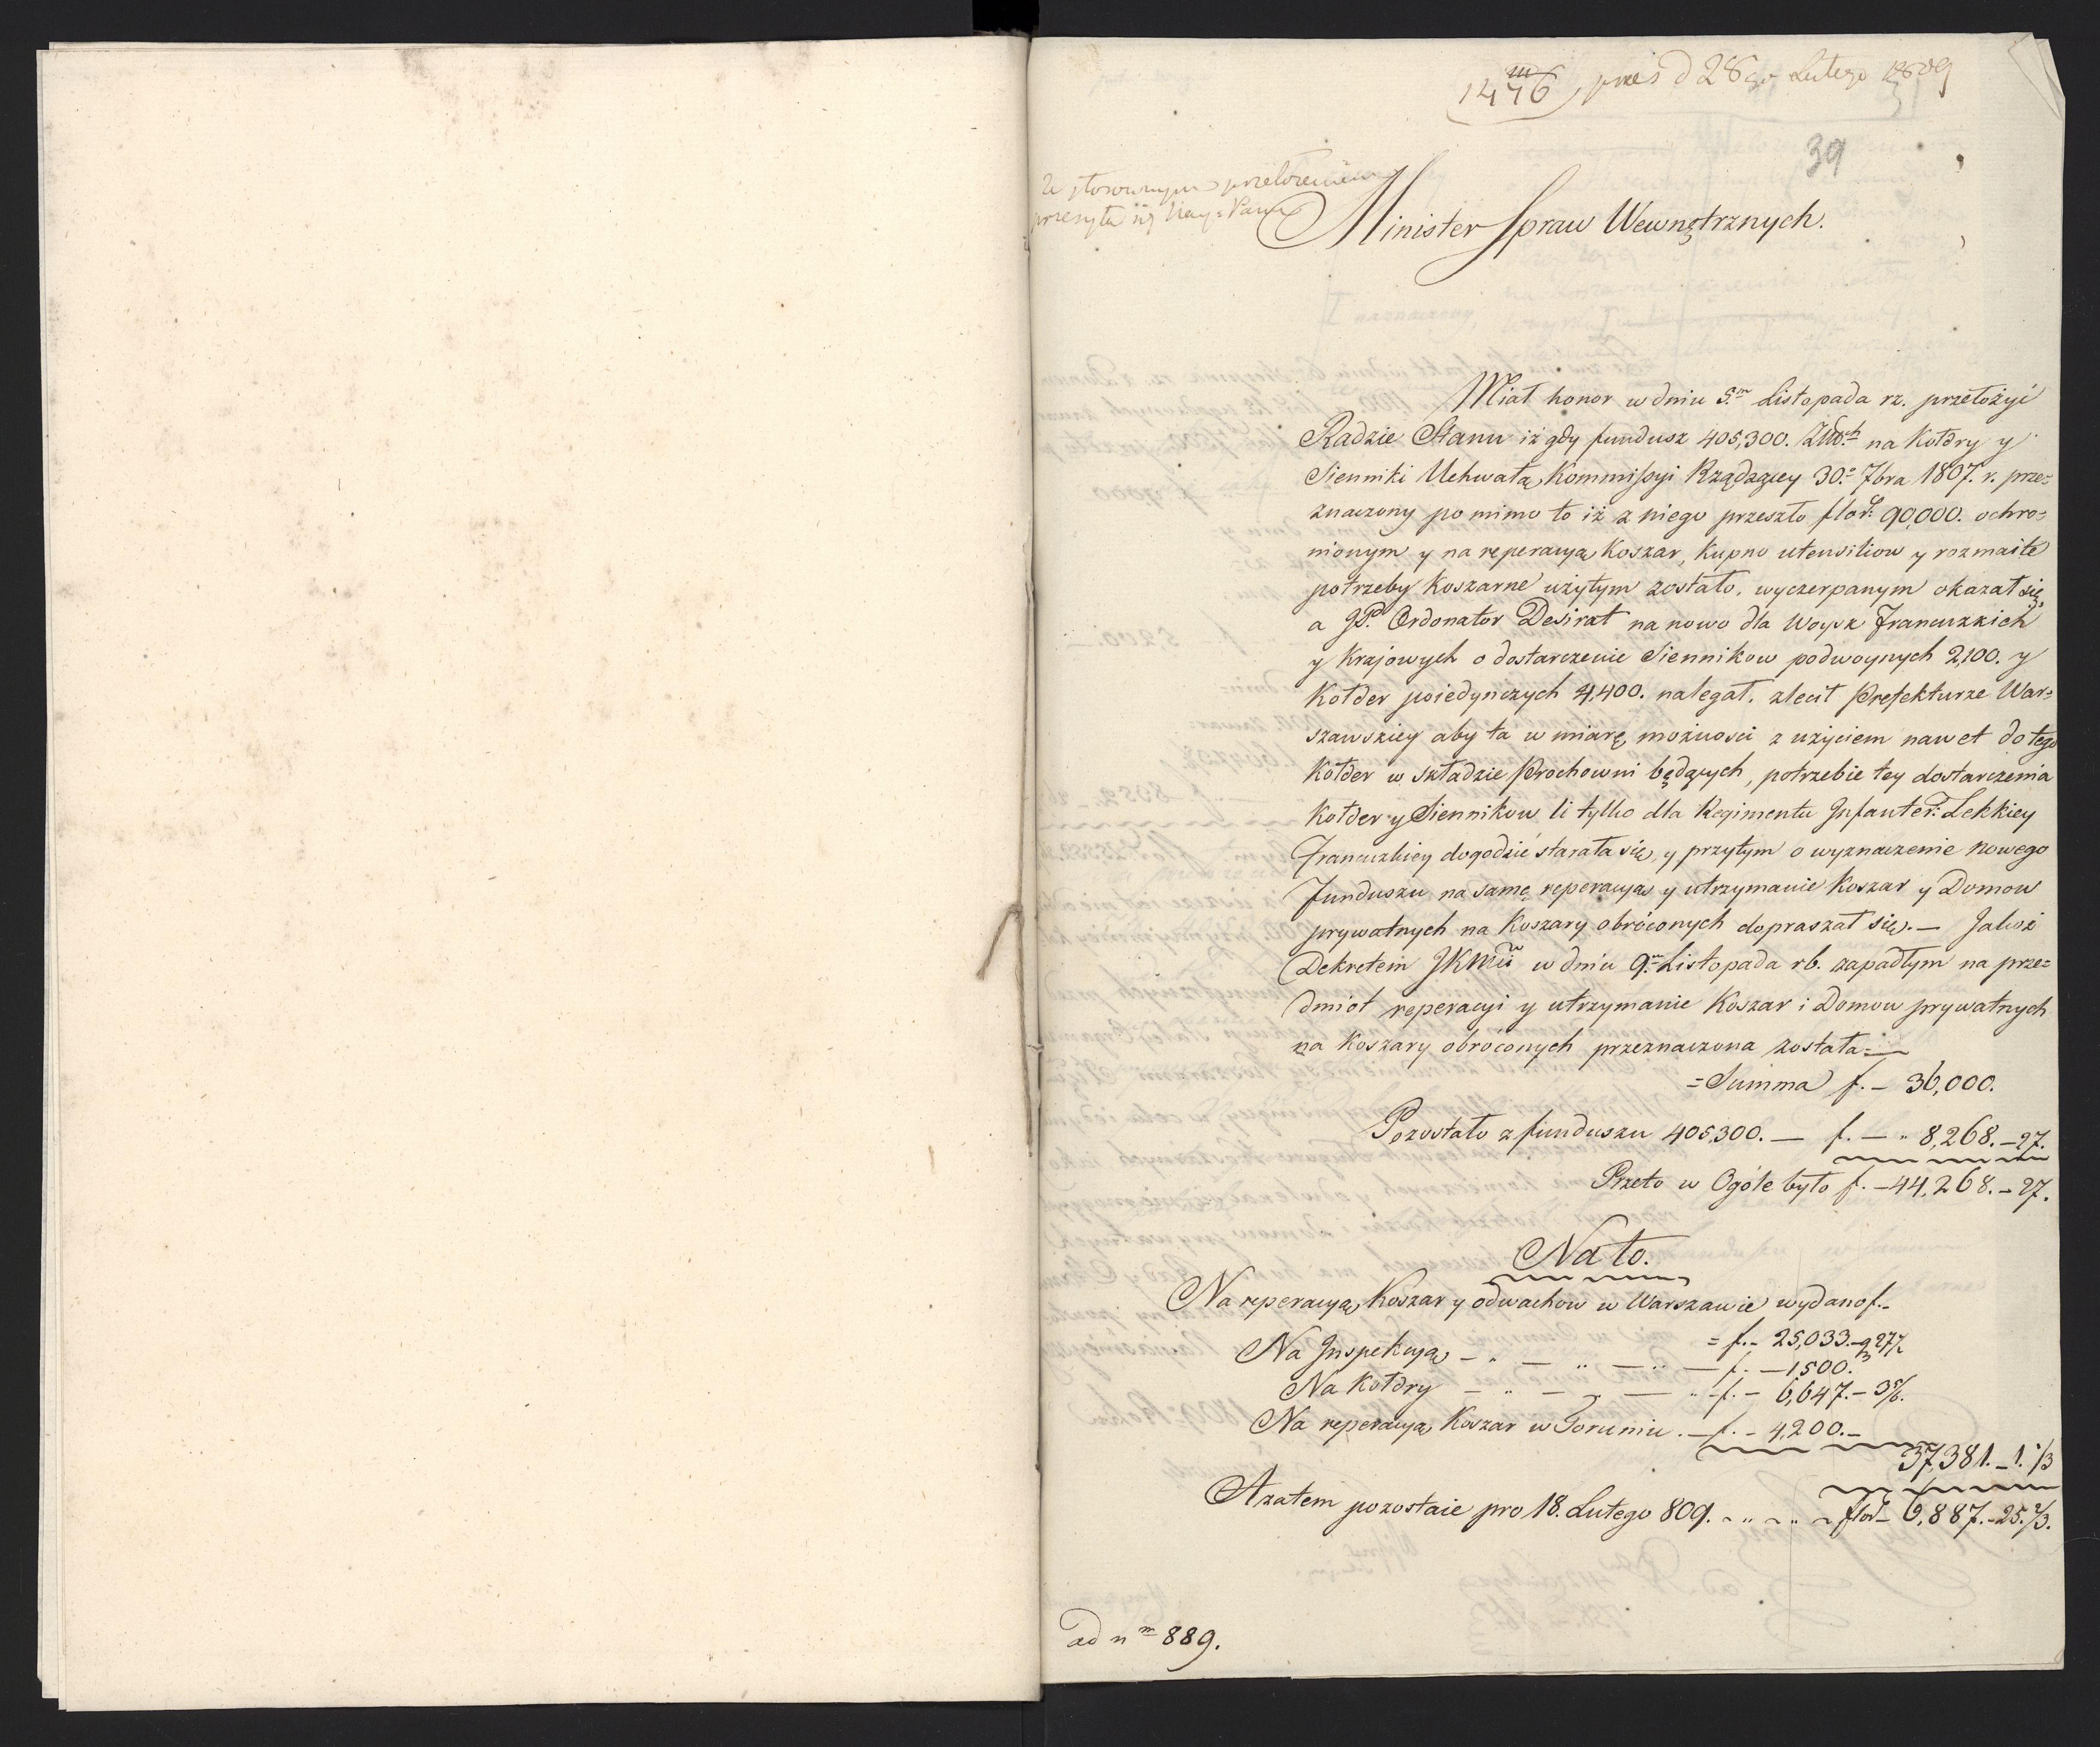 1476 pres d 28go Lutego 1809
39
Ze stosownym przełożeniem
przesyła się Nay: Panu
Minister Spraw Wewnętrznych.
Miał honor w dniu 5.m Listopada rz. przełożyć
Radzie Stanu iż gdy fundusz 405,300. Złłch na Kołdry y
Sienniki Uchwałą Kommissyi Rządzącey 30.o 7bra 1807. r. prze=
znaczony po mimo to iż z niego przeszło flor: 90,000. ochro=
nionym y na reperacyą Koszar, Kupno utensiliow y rozmaite
potrzeby Koszarne użytym zostało, wyczerpanym okazał się,
a JP. Ordonator Desirat na nowo dla Woysk Francuzkich
y Krajowych o dostarczenie Siennikow podwoynych 2,100. y
Kołder poiedynczych 4,400. nalegał, zlecił Prefekturze War=
szawskiey aby ta w miarę możności z użyciem nawet do tego
Kołder w Składzie Prochowni będących, potrzebie tey dostarczenia
Kołder y Siennikow li tylko dla Regimentu Infanter: Lekkiey
Francuzkiey dogodzić starała się, y przytym o wyznaczenie nowego
Funduszu na samę reperacyą y utrzymanie Koszar y Domow
prywatnych na Koszary obróconych dopraszał się. — Jakoż
Dekretem JKMci w dniu 9.m Listopada rb. zapadłym na prze=
dmiot reperacyi y utrzymanie Koszar i Domow prywatnych
na Koszary obróconych przeznaczona została =
= Summa f. — 36,000.
Pozostało z funduszu 405,300. — f. — " 8,268. — 27.
Przeto w Ogóle było f. — 44,268. — 27.
Na to.
Na reperacyą Koszar y odwachow w Warszawie wydano f. -
= f. - 25,033. - g 27 1/2
Na Inspekcyą — " — " — " — f. — 1,500.
Na Kołdry — " — " — " - f. - 6,647. - 3 5/6.
Na reperacyą Koszar w Toruniu. — f. - 4,200. -
37,381. - 1. 1/3
A zatem pozostaie pro 18. Lutego 809. - " - " - flor - 6,887. - 25. 2/3.
ad nm 889.